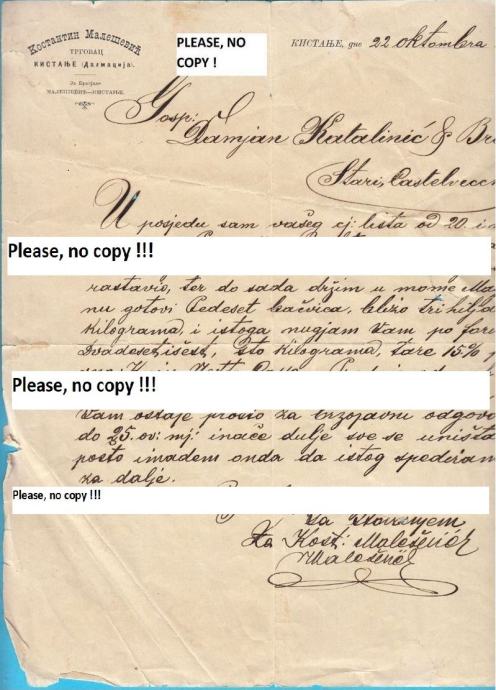 Костантин Малешевић
ТРГОВАЦ
КИСТАЊЕ (Далмација).
За Брзојаве
МАЛЕШЕВИЋ—КИСТАЊЕ.
PLEASE, NO
COPY !
КИСТАЊЕ, дне 22 oktombra
Gosp:
Damjan Katalinić & Br
Stari, Castelvecc
U posjedu sam vašeg cj: lista od 20. i
Please, no copy !!!
rastavio, ter do sada držim u mome Ma
nu gotovi Pedeset bačvica, blizo tri hiljad
kilograma, i istoga nugjam Vam po for
Dvadesetišest, sto kilograma, tare 15% p
Please, no copy !!!
Vam ostaje prosio za brzojavni odgovo
do 25. ov: mj: inače dulje sve se uništa
pošto imadem onda da istog spediram
za dalje.
Please, no copy !!!
Sa štovanjem
Za Kost: Malešević
Malešević